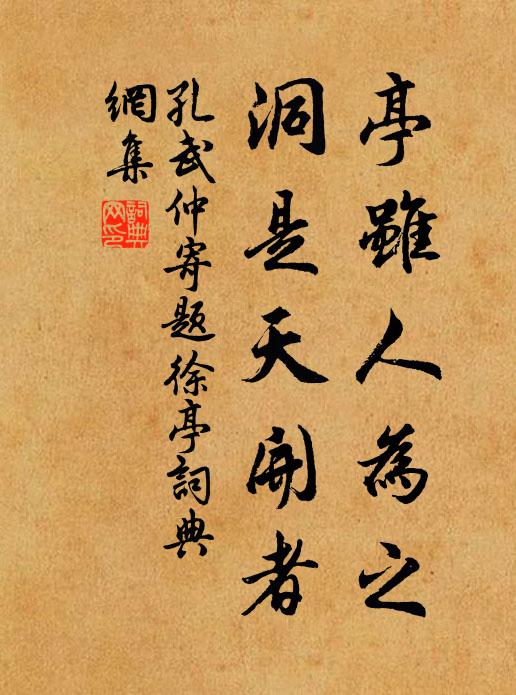 亭雖人為之
洞是天開者
孔武仲寄題徐亭詞典
網集
詞典
网印